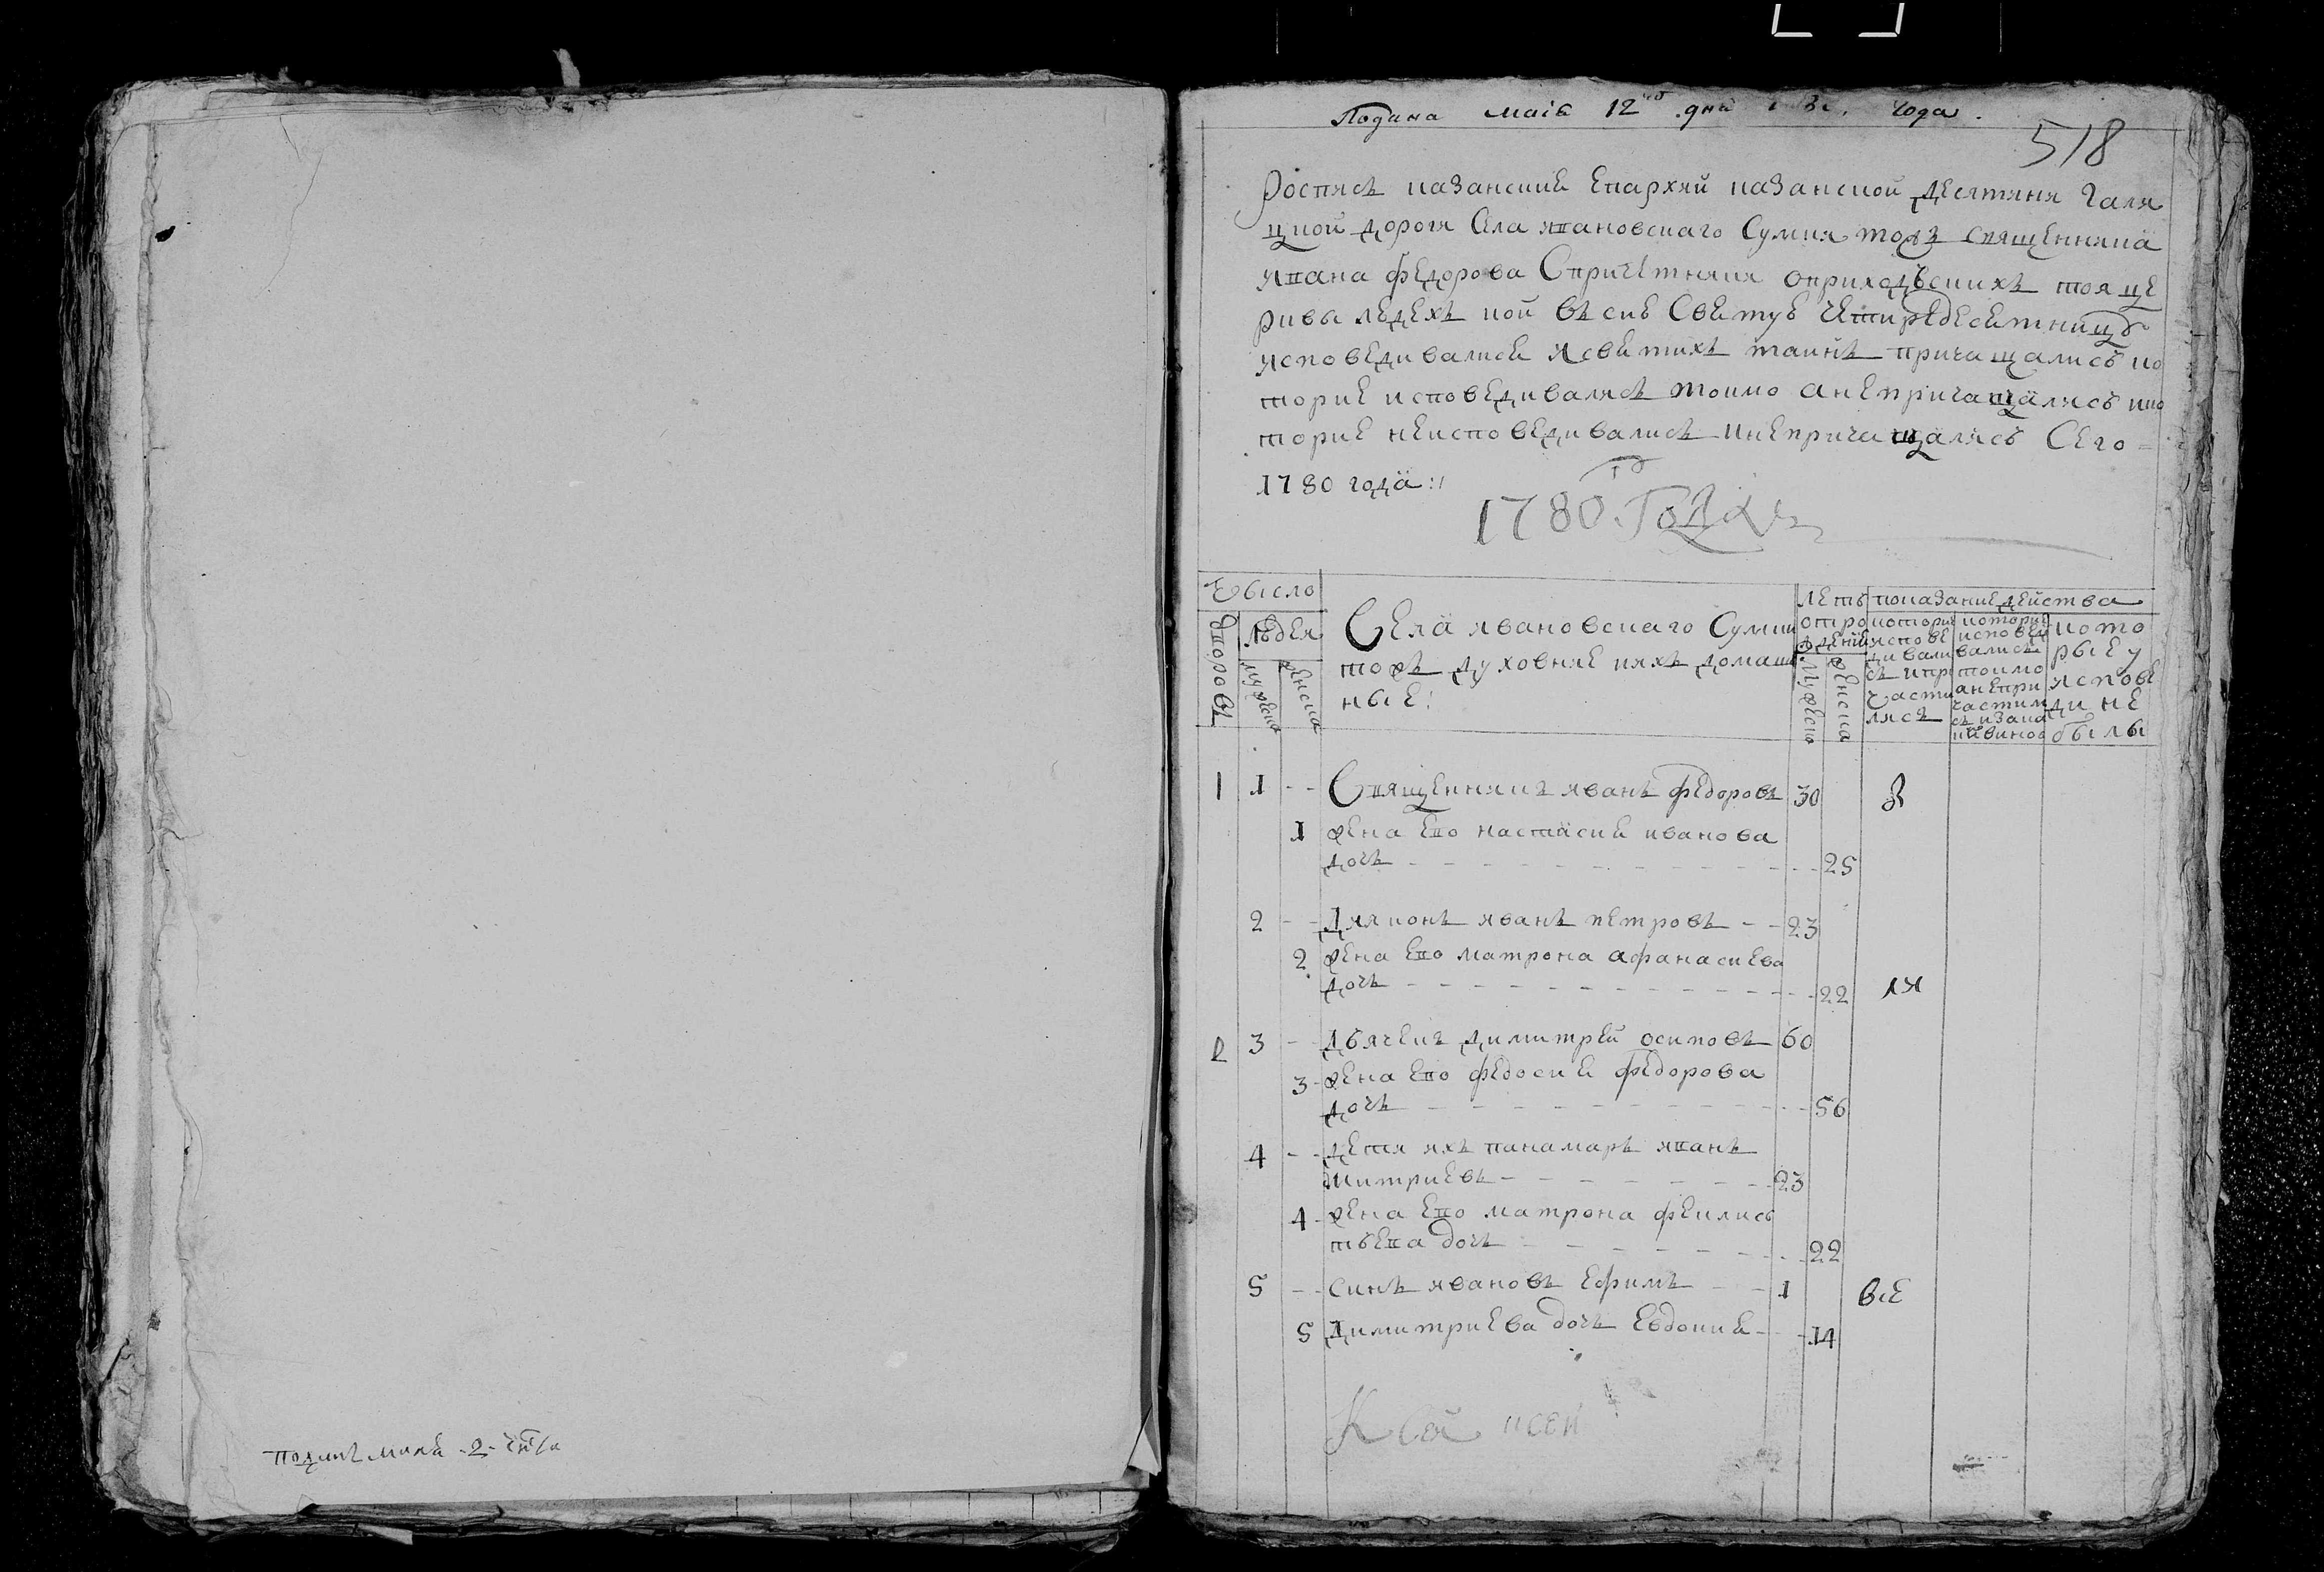 Подана маіа 12го дня года.
518
Роспись казанския епархии казанской десятины Гали
цкой дороги села Ивановскаго Сумки тож священника
Ивана Федорова с причетники о приходских тоя це
ркви людех кои в сию святую четиредесятницу
исповедивалися и святих таинъ причащались ко
торие исповедивались токмо а не причащались и ко
торие неисповедивались и не причащались сего
1780 года:
1780го Года
Число
дворовъ
людей
мужеска
женска
Села Ивановскаго Сумки
тожъ духовние и ихъ домаш
ные:
летъ
от ро
ждения
мужеска
женска
показание действа
которие
испове
дивали
сь и при
части
лись
которие
исповед
вались
токмо
а не при
частил
сь и за ка
ки винос
кото
рые у
испове
ди не
были
1 1 -- Священникъ Иванъ Федоровъ 30
1 жена ево Настасия Иванова
дочь 25
2 -- Дияконъ Иванъ Петровъ -- 23
2 жена ево Матрона Афанасиева
дочь 22 ли
2 3 -- Дьячекъ Димитрей Осиповъ 60
3 - жена ево Федосия Федорова
дочь 56
4 -- дети ихъ панамарь Иванъ
Митриевъ 23
4 - жена ево Матрона Филис
тьева дочь 22
5 -- синъ Ивановъ Ефимъ -- 1 все
5 Димитриева дочь Евдокия - 14
К сей